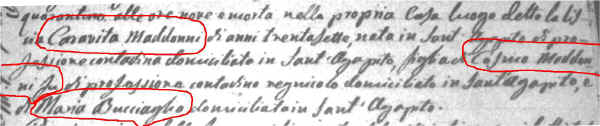 quarantuno alle ore nove è morta nella propria Casa luogo detto la Lis
cia Caravita Maddonni di anni trentasette, nata in Sant'Agapito di pro
fessione contadina domiciliata in Sant'Agapito, figlia di Cosmo Maddon
ni fu di professione contadino regnicolo domiciliato in Sant'Agapito, e
di Maria Bucciaglia domiciliata in Sant'Agapito.